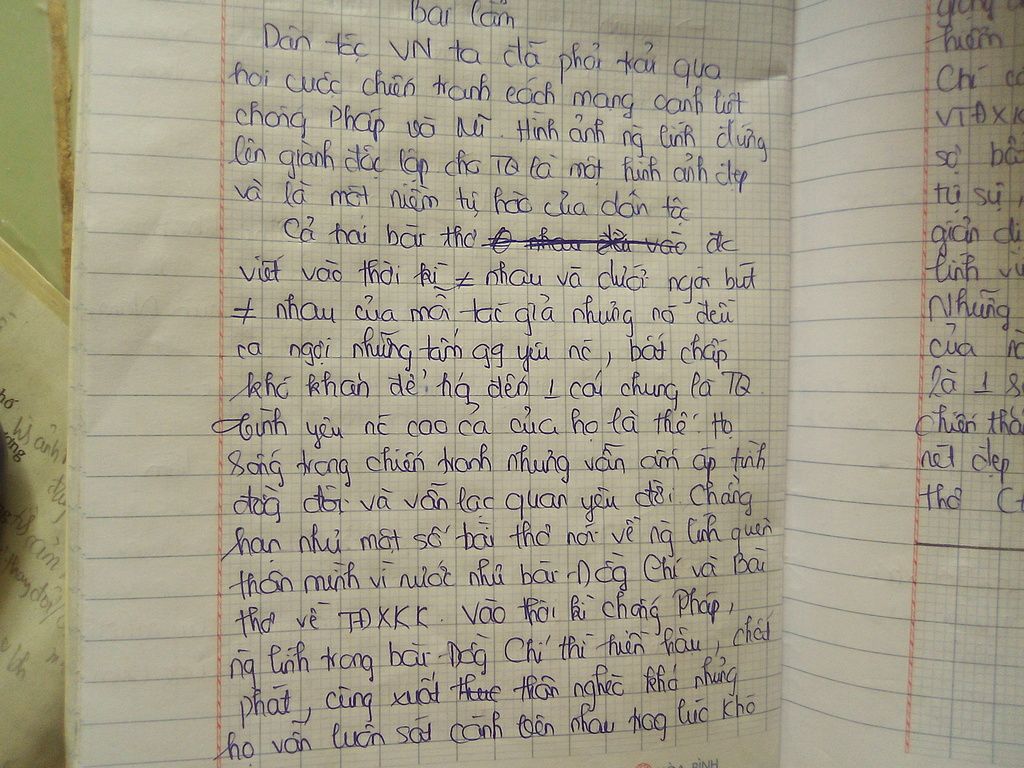 Bài làm
Dân tộc VN ta đã phải trải qua
hai cuộc chiến tranh cách mạng oanh liệt
chống Pháp và Mĩ. Hình ảnh ng lính đứng
lên giành độc lập cho TQ là một hình ảnh đẹp
và là một niềm tự hào của dân tộc
Cả hai bài thơ đc
viết vào thời kì ≠ nhau và dưới ngòi bút
≠ nhau của mỗi tác giả nhưng nó đều
ca ngợi những tấm gg yêu nc, bất chấp
khó khăn để hg đến 1 cái chung là TQ.
Tình yêu nc cao cả của họ là thế. Họ
sống trong chiến tranh nhưng vẫn ấm áp tình
đồg đội và vẫn lạc quan yêu đời. Chẳng
hạn như một số bài thơ nói về ng lính quên
thân mình vì nước như bài Đồg Chí và Bài
thơ về TĐXKK. Vào thời kì chống Pháp,
ng lính trong bài Đồg Chí thì hiền hậu, chất
phát, cùng xuất thân nghèo khó nhưng
họ vẫn luôn sát cánh bên nhau trog lúc khó
hiểm
Chí
VTĐXKK
sợ
tự sự,
giản dị
lính
Những
của
là 1
nét đẹp
thơ